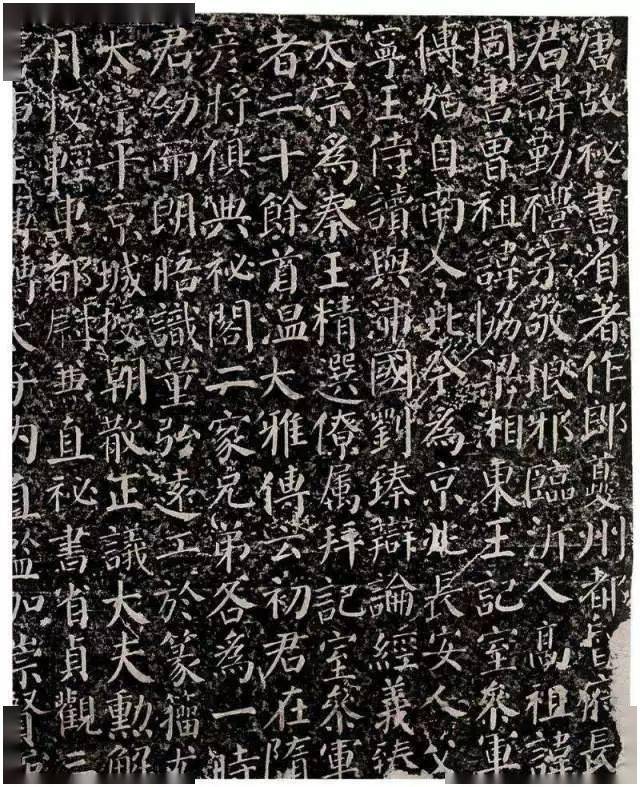 唐故祕書省著作郎夔州都督府長
君諱勤禮字敬琅邪臨沂人高祖諱
周書曾祖諱協梁湘東王記室參軍
傳始自南入北今爲京兆長安人父
寧王侍讀與沛國劉臻辯論經義臻
太宗爲秦王精選僚属拜記室參軍
者二十餘首温大雅傳云初君在隋
彦將俱典祕閣二家兄弟各爲一時
君幼而朗晤識量弘遠工於篆籀尤
太宗平京城授朝散正議大夫勳解
月授輕車都尉兼直祕書省貞觀三
轉太子内直監加崇賢